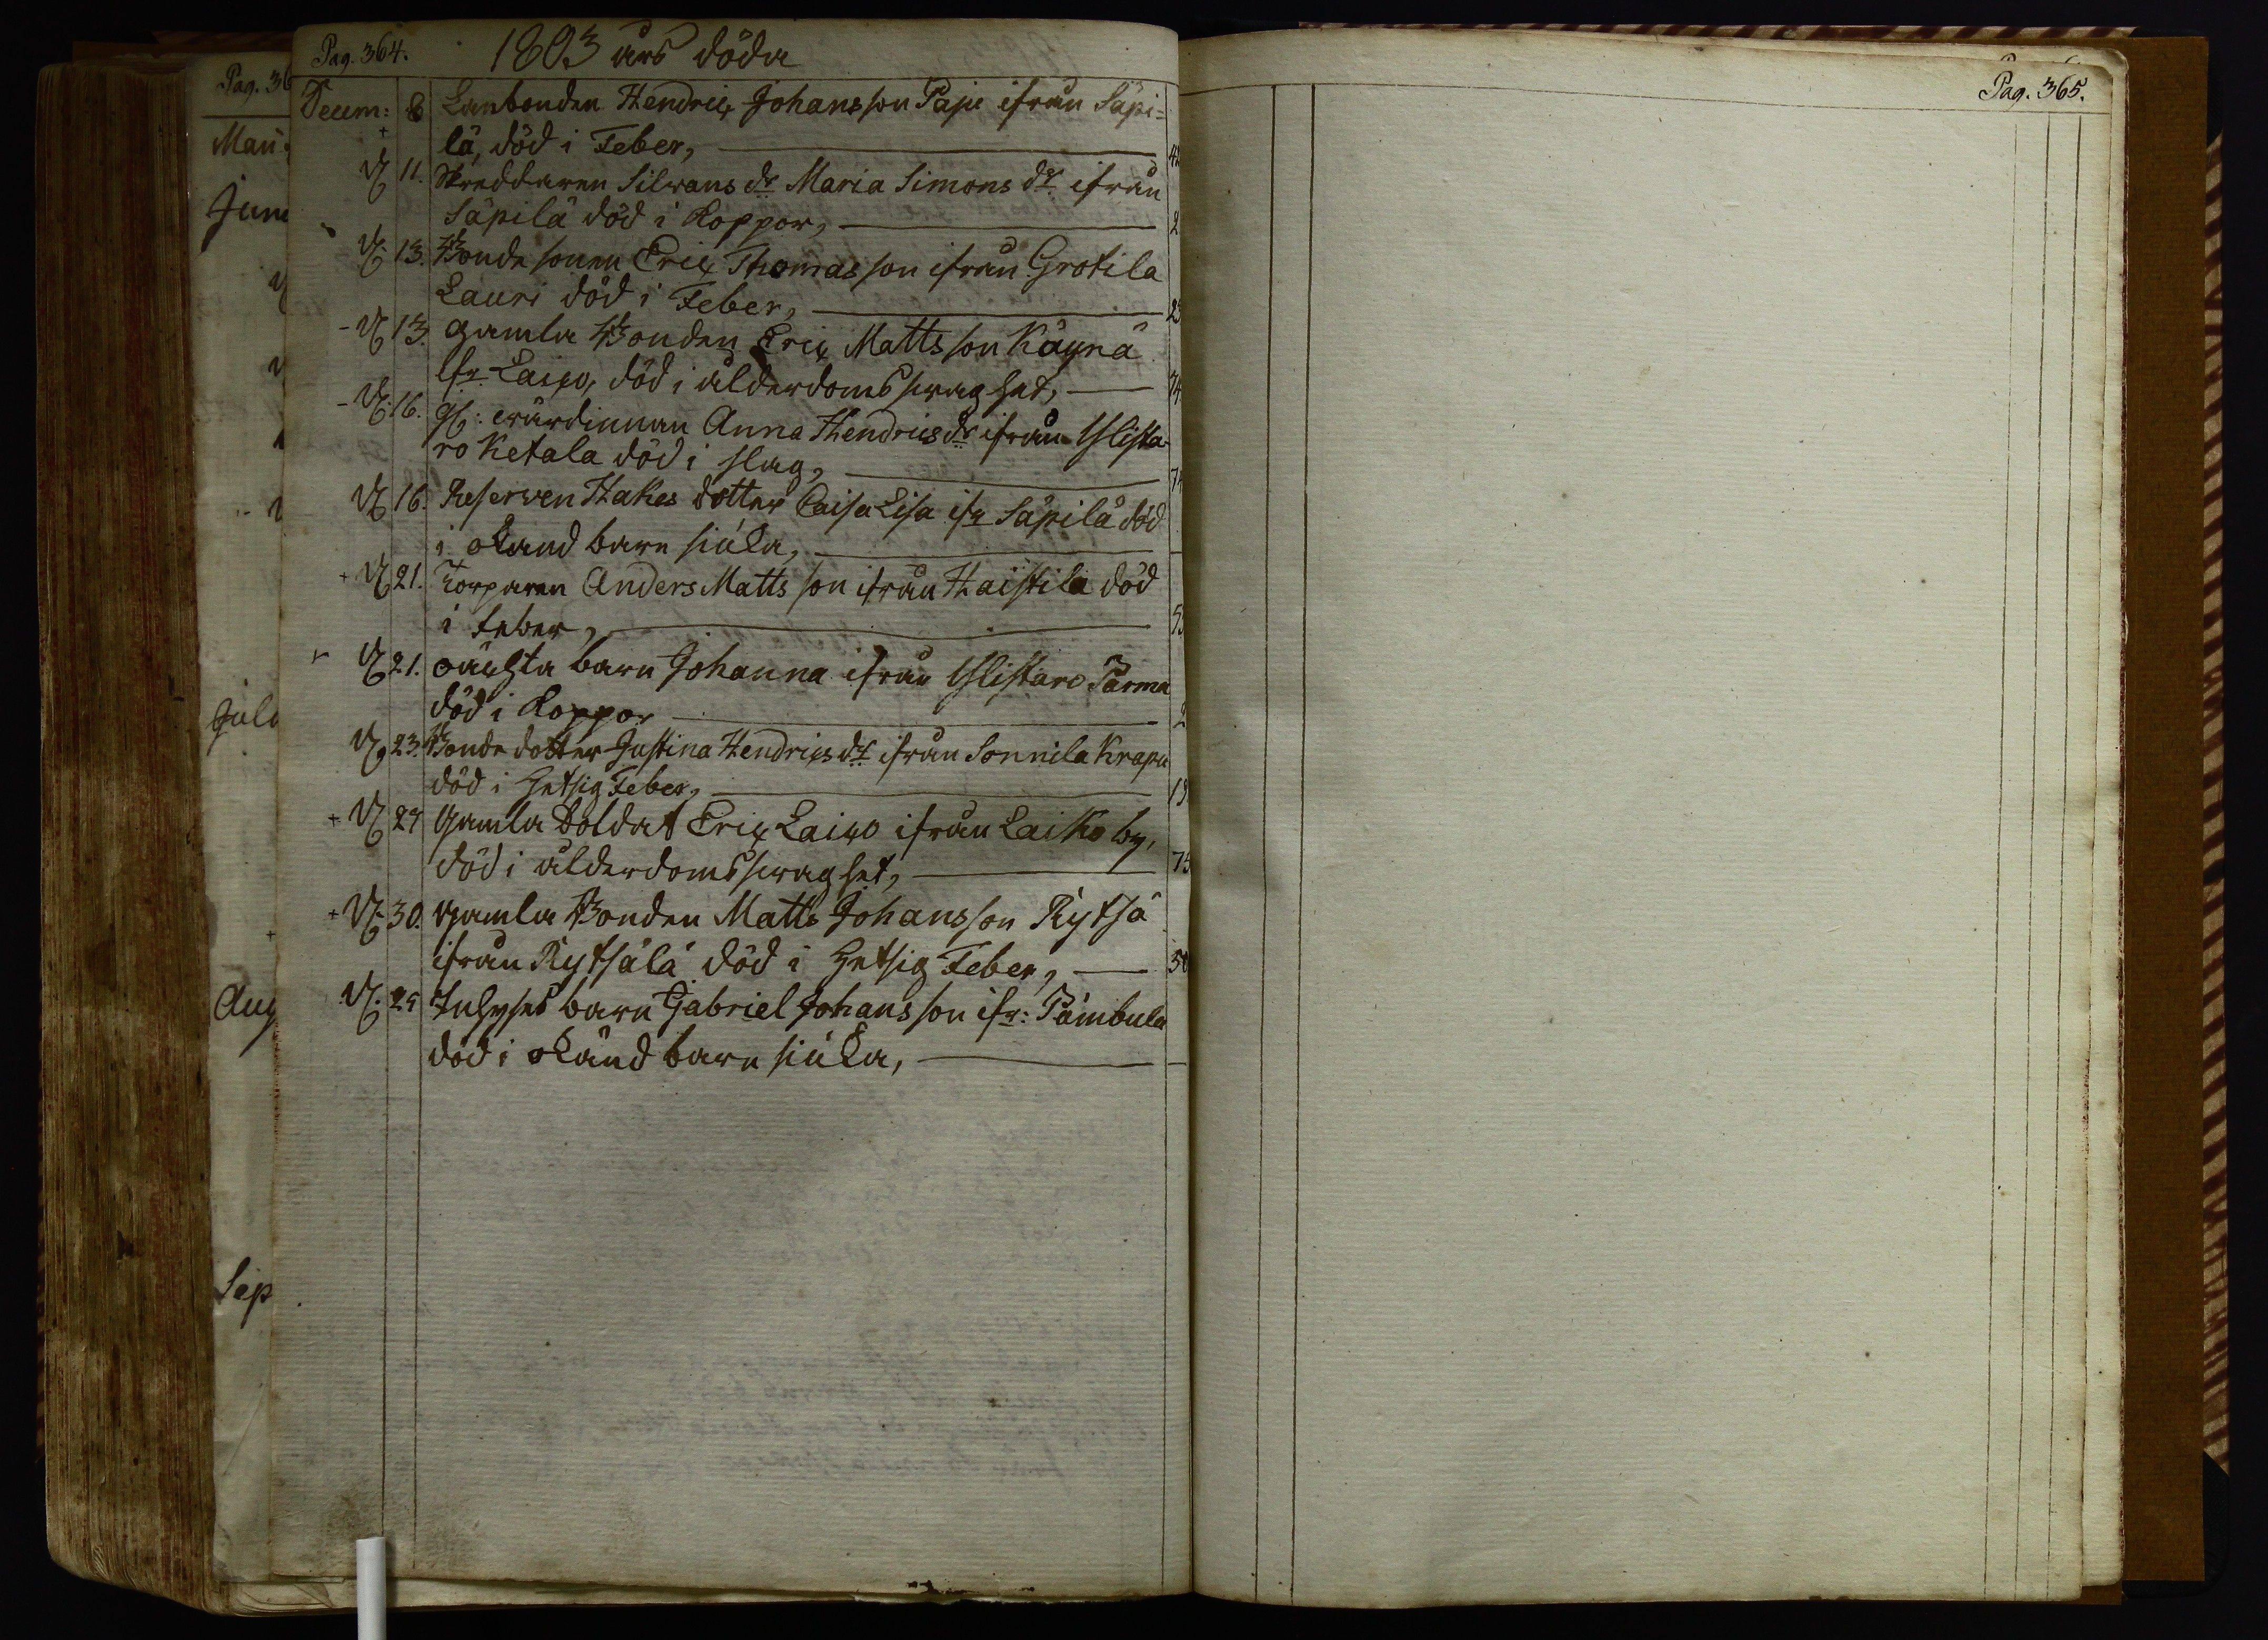 Pag. 364. 1803 års döda
Decem: 8 Lanbonden Hendric Johansson Paju ifrån Säpi-
lä, död i Feber, 42
D 11. Skreddaren Silvans dr Maria Simons dr ifrån
Säpilä död i Koppor, 2
D 13. Bonde sonen Eric Thomasson ifrån Grotila
Lauri död i Feber, 23
D 13. gamla Bonden Eric Mattsson Käyrä
ifr Laico, död i ålderdoms swaghet, 74
D 16. gl: wärdinnan Anna Hendrics dr ifrån Ylista-
ro Ketala död i slag, 74
D 16. Reserven Hakes dotter Caisa Lisa ifr Säpilä död
i okand barn siuka,
D 21. Torparen Anders Mattsson ifrån Haistila död
i feber,
D 21. oäckta barn Johanna ifrån Ylistaro Parma
död i Koppor 2
D 23. Bonde dotter Justina Hendrics dr ifrån Sonnila Krapu
död i hetsig Feber,
D 29 gamla Soldat Eric Laico ifrån Laiko by,
död i ålderdoms swaghet, 75
D 30. gamla Bonden Matts Johansson Rytsä
ifrån Rytsälä död i hetsig Feber, 50
D. 25 Inhyses barn Gabriel Johansson ifr: Pambula
död i okänd barn siuka,
Pag. 365.
Pag. 36
Maii
Juni
Juli
Aug
Sep